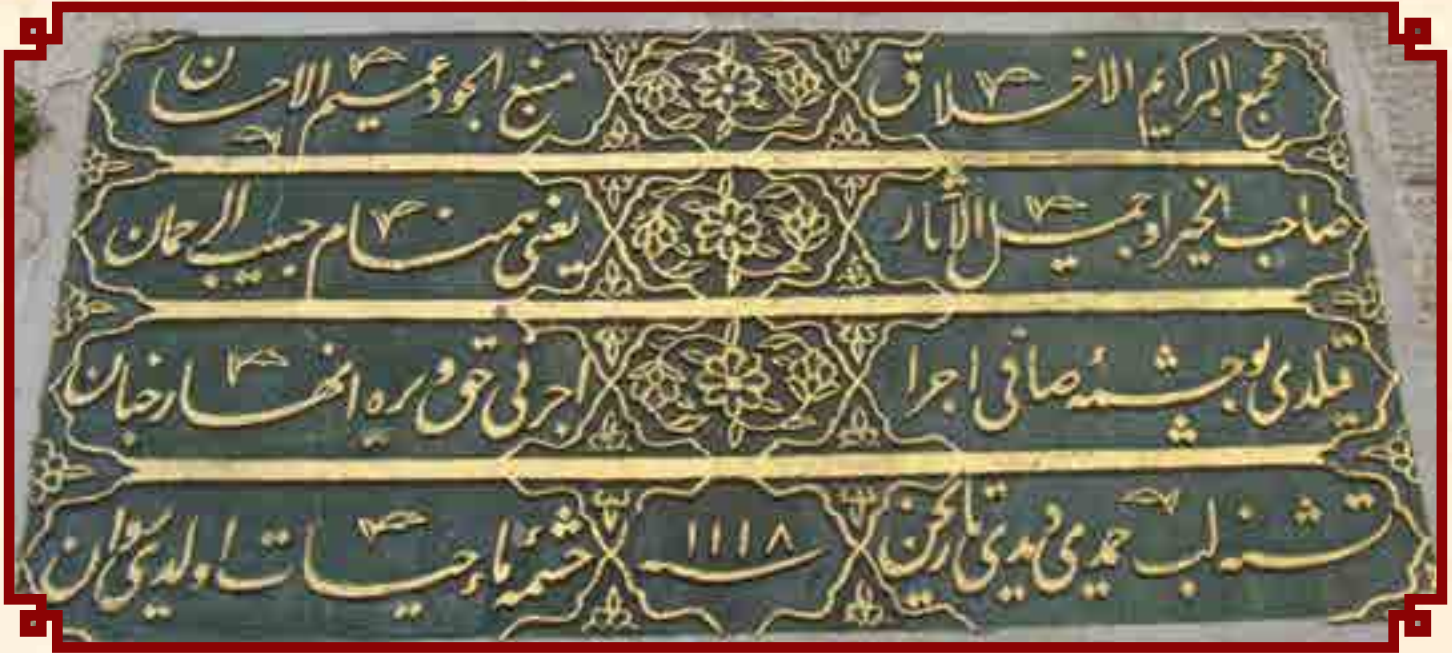 مجمع البر كريم الاخلاق منبع الجود عميم الاحسان
صاحب الخير او جميل الآثار يعنى همنام حبيب الرحمان
قيلدى بو چشمهٔ صافى اجرا اجرنى حق ويره انهار جنان
تشنه لب حمدى ديدى تاريخن سنه ١١١٨ چشمهٔ ماء حيات اولدى روان